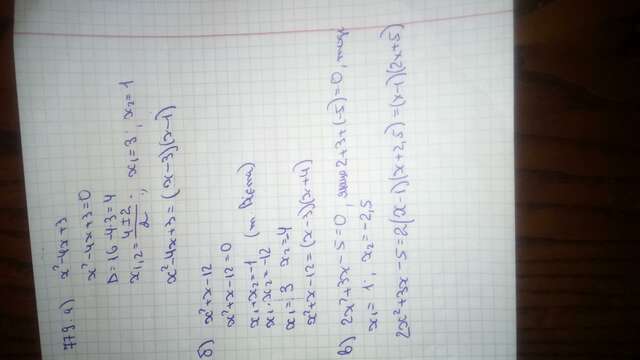 779. а) x²-4x+3
x²-4x+3=0
D=16-4·3=4
x₁,₂=(4±2)/2; x₁=3; x₂=1
x²-4x+3=(x-3)(x-1)
б) x²+x-12
x²+x-12=0
x₁+x₂=-1 (т Виета)
x₁·x₂=-12
x₁=3 x₂=4
x²+x-12=(x-3)(x+4)
в) 2x²+3x-5=0, 2+3+(-5)=0,
x₁=1; x₂=-2,5
2x²+3x-5=2(x-1)(x+2,5)=(x-1)(2x+5)